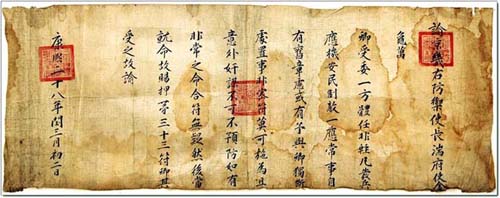 諭京畿右防禦使長湍府使金
龜萬
卿受委一方體任非輕凡發兵
應機安民制敵一應常事自
有舊章慮或有予與卿獨斷
處置事非密符莫可施爲且
意外奸謀不可不預防如有
非常之命合符無疑然後當
就命故賜押第三十三符卿其
受之故諭
康熙二十八年閏三月初二日